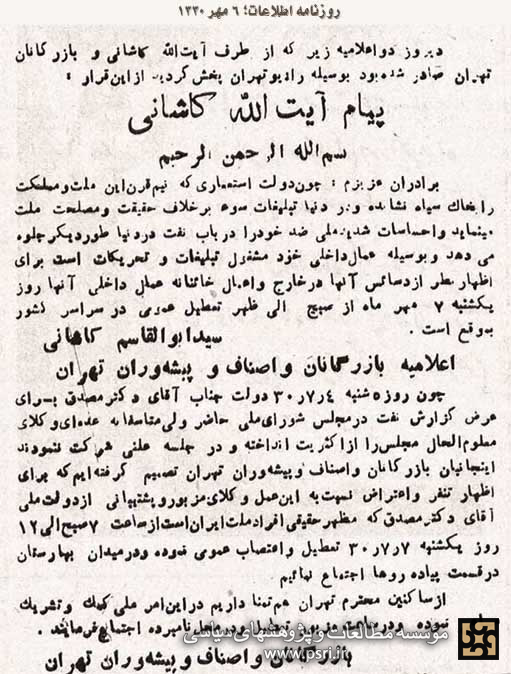 روزنامه اطلاعات؛ ۶ مهر ۱۳۳۰
دیروز دو اعلامیه زیر که از طرف آیت‌الله کاشانی و بازرگانان
تهران صادر شده بود بوسیله رادیو تهران پخش گردید از این قرار :
پیام آیت الله کاشانی
بسم الله الرحمن الرحیم
برادران عزیزم : چون دولت استعماری که نیم قرن این ملت و مملکت
را بخاك سیاه نشانده و در دنیا تبلیغات سوء برخلاف حقیقت و مصلحت ملت
مینماید و احساسات شدید ملی ضد خود را در باب نفت در دنیا طور دیگر جلوه
می دهد و بوسیله عمال داخلی خود مشغول تبلیغات و تحریکات است برای
اظهار تنفر از دسائس آنها در خارج و اعمال خائنانه عمال داخلی آنها روز
یکشنبه ۷ مهر ماه از صبح الی ظهر تعطیل عمومی در سراسر کشور
بموقع است .
سید ابوالقاسم کاشانی
اعلامیه بازرگانان و اصناف و پیشه‌وران تهران
چون روز ۵ شنبه ۳۰/۷/۴ دولت جناب آقای دکتر مصدق برای
عرض گزارش نفت در مجلس شورای ملی حاضر ولی متاسفانه عده‌ای وکلای
معلوم الحال مجلس را از اکثریت انداخته و در جلسه علنی شرکت ننمودند
اینجانبان بازرگانان و اصناف و پیشه وران تهران تصمیم گرفته ایم که برای
اظهار تنفر و اعتراض نسبت به این عمل و کلای مزبور و پشتیبانی از دولت ملی
آقای دکتر مصدق که مظهر حقیقی افراد ملت ایران است از ساعت ۷ صبح الی ۱۲
روز یکشنبه ۳۰/۷/۷ تعطیل و اعتصاب عمومی نموده و در میدان بهارستان
در قسمت پیاده روها اجتماع نمائیم
از ساکنین محترم تهران هم تمنا داریم در این امر ملی کمك و تشریك
نموده و در ساعت مزبور تعطیل و در محل نامبرده اجتماع فرمایند .
بازرگانان و اصناف و پیشه‌وران تهران
موسسه مطالعات و پژوهشهای سیاسی
www.psri.ir